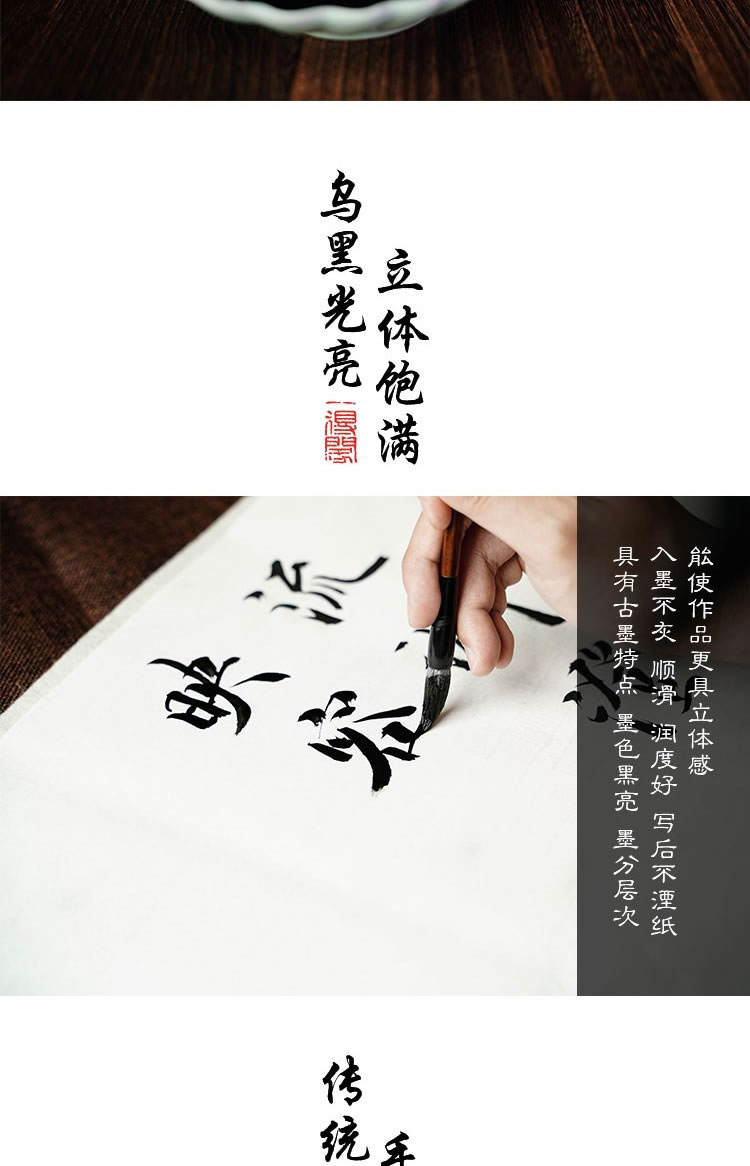 乌黑光亮
立体饱满
一得阁
流
映
具有古墨特点 墨色黑亮 墨分层次
入墨不灰 顺滑 润度好 写后不湮纸
能使作品更具立体感
传统
手